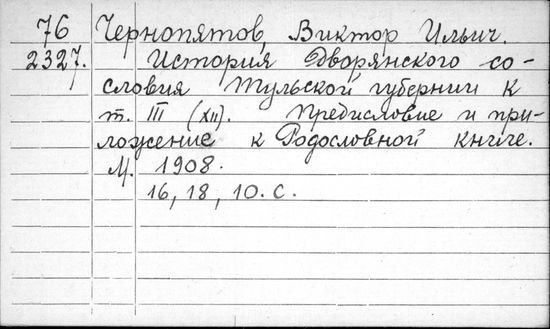 76 Чернопятов, Виктор Ильич.
2327. История Дворянского со-
словия Тульской губернии к
т. III (XII). Предисловие и при-
ложение к Родословной книге.
М. 1908.
16, 18, 10. с.